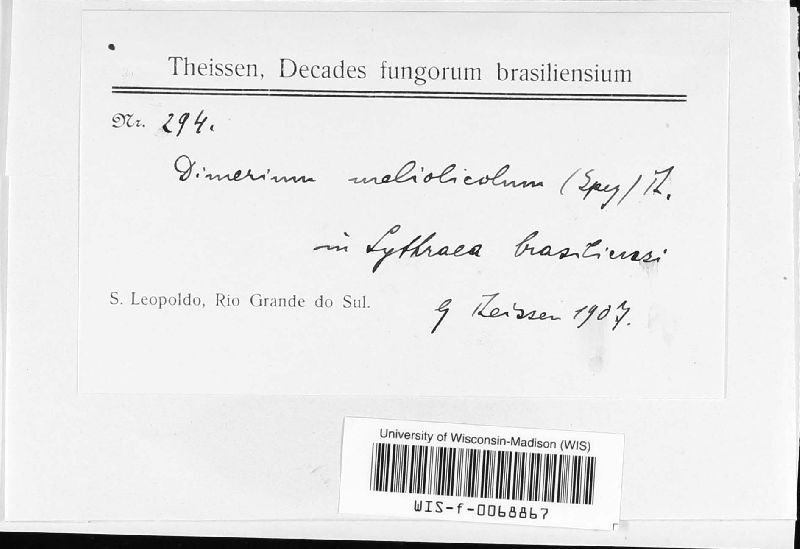 Theissen, Decades fungorum brasiliensium
Nr. 294.
Dimerium meliolicolum (Speg) Th.
in Lythraea brasiliensi
S. Leopoldo, Rio Grande do Sul.
G Theissen 1907.
University of Wisconsin-Madison (WIS)
WIS-f-0068867